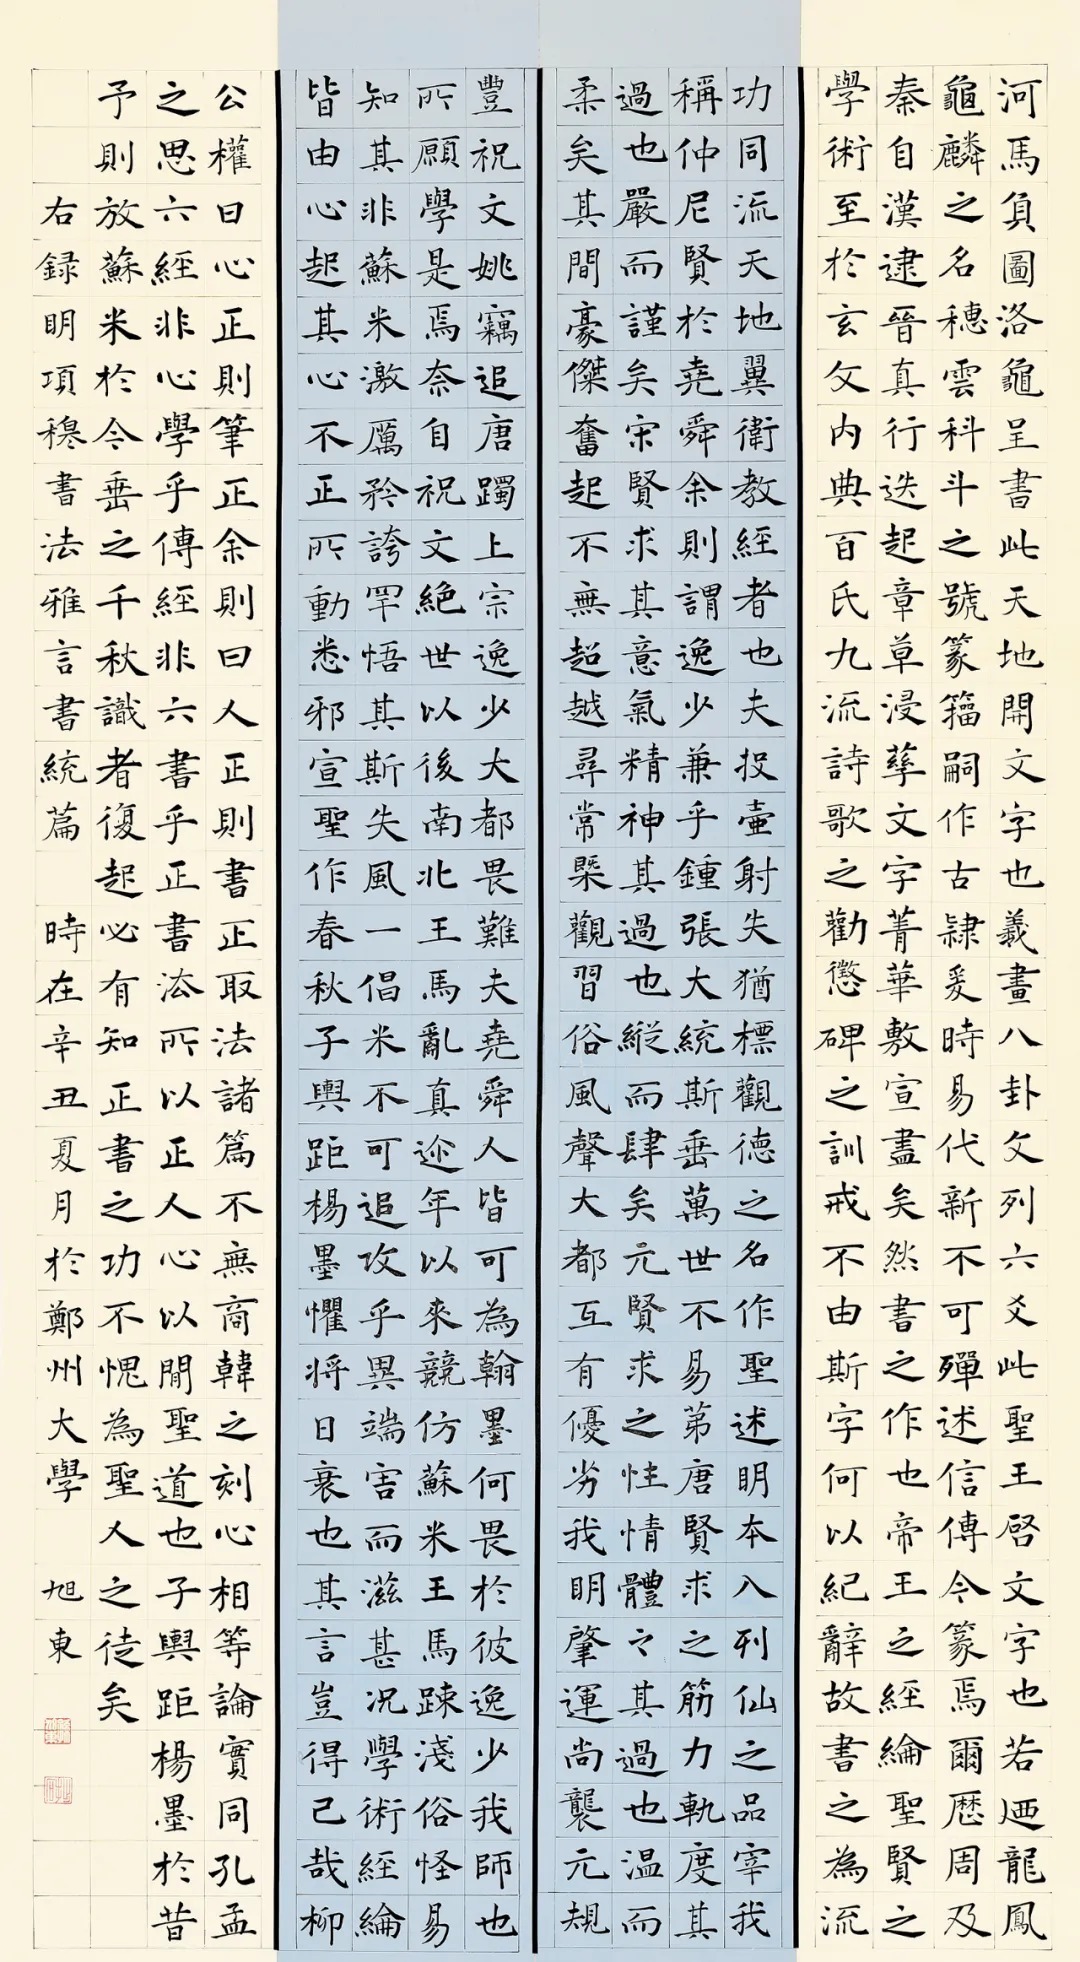 河馬負圖洛龜呈書此天地開文字也羲畫八卦文列六爻此聖王啓文字也若迺龍鳳
龜麟之名穗雲科斗之號篆籀嗣作古隸爰時易代新不可殫述信傳今篆焉爾歷周及
秦自漢逮晉真行迭起章草浸孳文字菁華敷宣盡矣然書之作也帝王之經綸聖賢之
學術至於玄文內典百氏九流詩歌之勸懲碑之訓戒不由斯字何以紀辭故書之為流
功同流天地翼衛教經者也夫投壺射失猶標觀德之名作聖述明本八列仙之品宰我
稱仲尼賢於堯舜余則謂逸少兼乎鍾張大統斯垂萬世不易第唐賢求之筋力軌度其
過也嚴而謹矣宋賢求其意氣精神其過也縱而肆矣元賢求之性情體々其過也温而
柔矣其間豪傑奮起不無超越尋常槩觀習俗風聲大都互有優劣我明肇運尚襲元規
豐祝文姚竊追唐躅上宗逸少大都畏難夫堯舜人皆可為翰墨何畏於彼逸少我師也
所願學是焉奈自祝文絕世以後南北王馬亂真迩年以來競仿蘇米王馬疎淺俗怪易
知其非蘇米激厲矜誇罕悟其斯失風一倡米不可追攻乎異端害而滋甚况學術經綸
皆由心起其心不正所動悉邪宣聖作春秋子輿距楊墨懼將日衰也其言豈得已哉柳
公權曰心正則筆正余則曰人正則書正取法諸篇不無商韓之刻心相等論實同孔孟
之思六經非心學乎傳經非六書乎正書法所以正人心以閒聖道也子輿距楊墨於昔
予則放蘇米於今垂之千秋識者復起必有知正書之功不愧為聖人之徒矣
右録明項穆書法雅言書統篇 時在辛丑夏月於鄭州大學 旭東